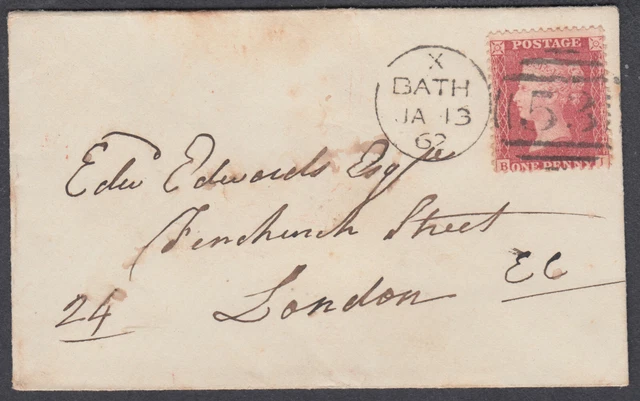 X
BATH
JA 13
62
POSTAGE
53
B ONE PENNY
Edwd Edwards Esqre
Fenchurch Street
London
EC
24